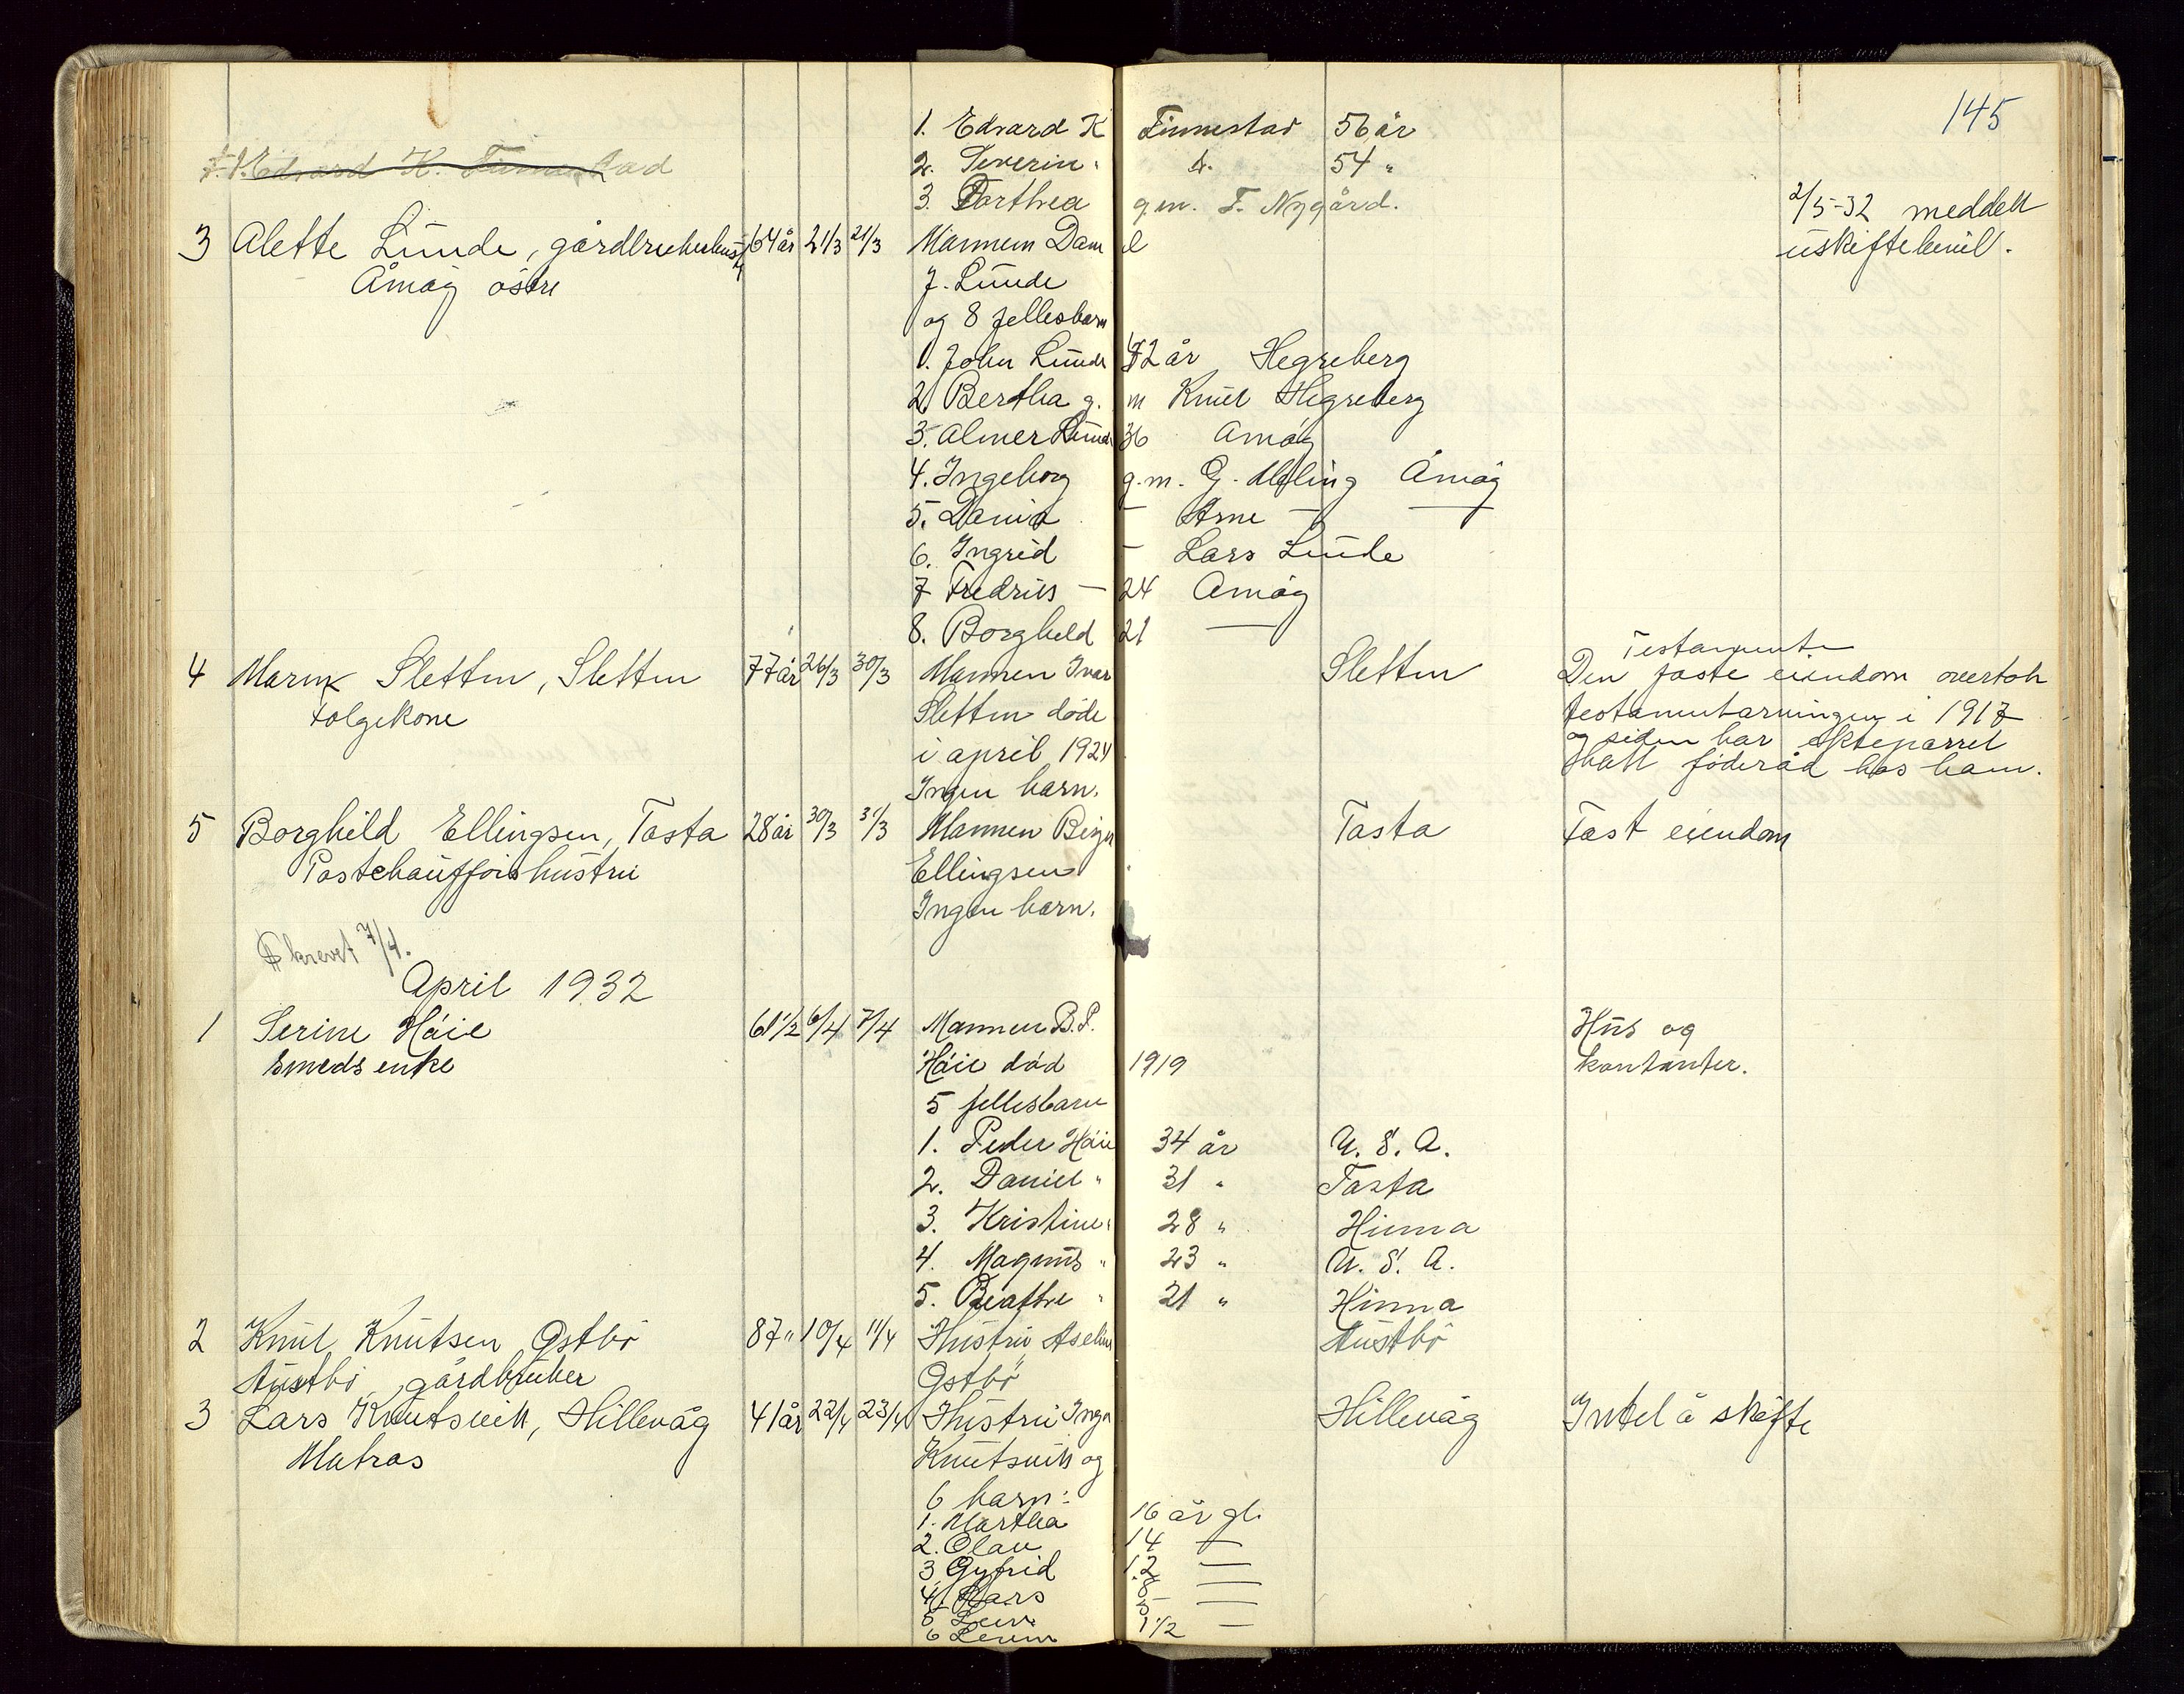 145
1. Edvard K Finnestad 56 år
2. Severin " d. 54 "
Edvard K. Finnestad
3. Dorthea g.m. F. Nygård.
2/5-32 meddelt
uskiftebevil.
3 Alette Lunde, gårdbrukerhustr 64 år 21/3 21/3 Mannen Daniel
Åmøy østre J. Lunde
og 8 fellesbarn
1. John Lunde 42 år Hegreberg
2. Bertha g. m Knut Hegreberg
3. Almer Lunde 36 Amøy
4. Ingeborg g.m. G. Meling Åmøy
5. Dania — Arne — —
6. Ingrid — Lars Lunde
7 Fredrus — 24 Amøy
8. Borghild 21 —
4 Slettm, Slettm 77 år 26/3 30/3 Mannen Ivar Slettm Testamente
Den faste eiendom overtok
Folgekone Slettm døde testamentarvingen i 1917
i april 1924 og siden har ekteparret
hatt føderåd hos ham.
Ingen barn.
5 Borghild Ellingsen, Tasta 28 år 30/3 31/3 Mannen Birger Tasta Fast eiendom
Postchaufførshustru Ellingsen
Ingen barn.
Skrevet 7/4.
April 1932
1 Serine Håie 61 1/2 6/4 7/4 Mannen B.P. Hus og
smeds enke Håie død 1919 kontanter.
5 fellesbarn
1. Peder Håie 34 år U.S.A.
2. Daniel " 31 " Tasta
3. Kristine " 28 " Hinna
4. Magnus " 23 " U.S.A.
5. Beathe " 21 " Hinna
2 Knut Knutsen Østbø 87 " 10/4 11/4 Hustru Aseline Austbø
Austbø, gårdbruker Østbø
3 Lars Knutsvik, Hillevåg 41 år 22/4 23/4 Hustru Inga Hillevåg Intet å skifte
Matros Knutsvik og
6 barn:
1. Martha 16 år gl.
2. Olav 14 —
3 Gyfrid 12 —
4 Lars 8 —
5 5 —
6 1 1/2 —